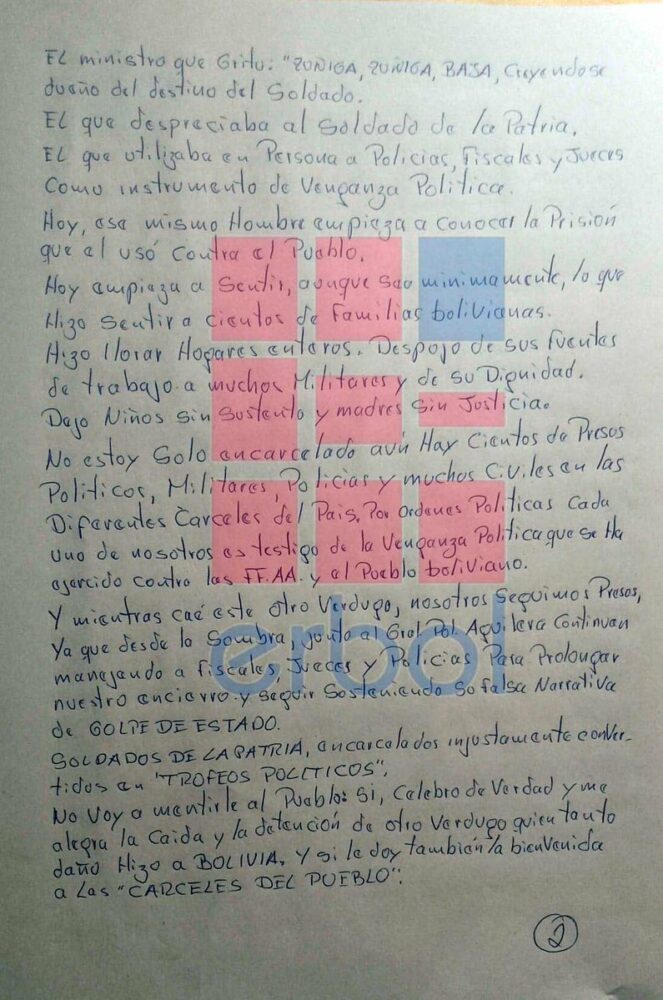 El ministro que Grito: "ZUÑIGA, ZUÑIGA, BAJA, Creyendose
dueño del destino del Soldado.
El que despreciaba al Soldado de la Patria.
El que utilizaba en Persona a Policias, Fiscales y Jueces
Como instrumento de Venganza Politica.
Hoy, ese mismo Hombre empieza a conocer la Prisión
que el usó Contra el Pueblo.
Hoy empieza a Sentir, aunque sea minimamente, lo que
Hizo Sentir a Cientos de familias bolivianas.
Hizo llorar Hogares enteros. Despojo de sus fuentes
de trabajo a muchos Militares y de su Dignidad.
Dejo Niños sin sustento y madres Sin Justicia.
No estoy Solo encarcelado aún Hay Cientos de Presos
Politicos, Militares, Policias y muchos Civiles en las
Diferentes Carceles del Pais. Por Ordenes Politicas Cada
uno de nosotros es testigo de la Venganza Politica que se Ha
ejercido contra las FF.AA. y el Pueblo boliviano.
Y mientras caé este otro Verdugo, nosotros Seguimos Presos,
Ya que desde la Sombra, junto al Gral. Pol. Aguilera Continuan
manejando a fiscales, Jueces y Policias Para Prolongar
nuestro encierro y seguir Sosteniendo su falsa Narrativa
de GOLPE DE ESTADO.
SOLDADOS DE LA PATRIA, encarcelados injustamente conver-
tidos en "TROFEOS POLITICOS".
No Voy a mentirle al Pueblo: Si, Celebro de Verdad y me
alegra la Caida y la detención de otro Verdugo quien tanto
daño Hizo a BOLIVIA. Y si le doy también la bienvenida
a las "CARCELES DEL PUEBLO".
2
erbol